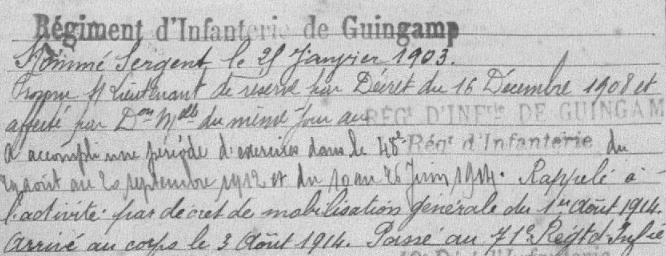 Régiment d'Infanterie de Guingamp
Nommé Sergent le 25 Janvier 1903.
Promu S/Lieutenant de réserve par Décret du 16 Décembre 1908 et
affecté par Don Mlle du même jour au RÉGt D'INFrie DE GUINGAM
A accompli une période d'exercices dans le 48e Régt d'Infanterie du
août au 20 septembre 1912 et du 10 au 26 Juin 1914. Rappelé à
l'activité par décret de mobilisation générale du 1er Août 1914.
Arrivé au corps le 3 Août 1914. Passé au 71e Régt d'Infie
Régt d'Infanterie